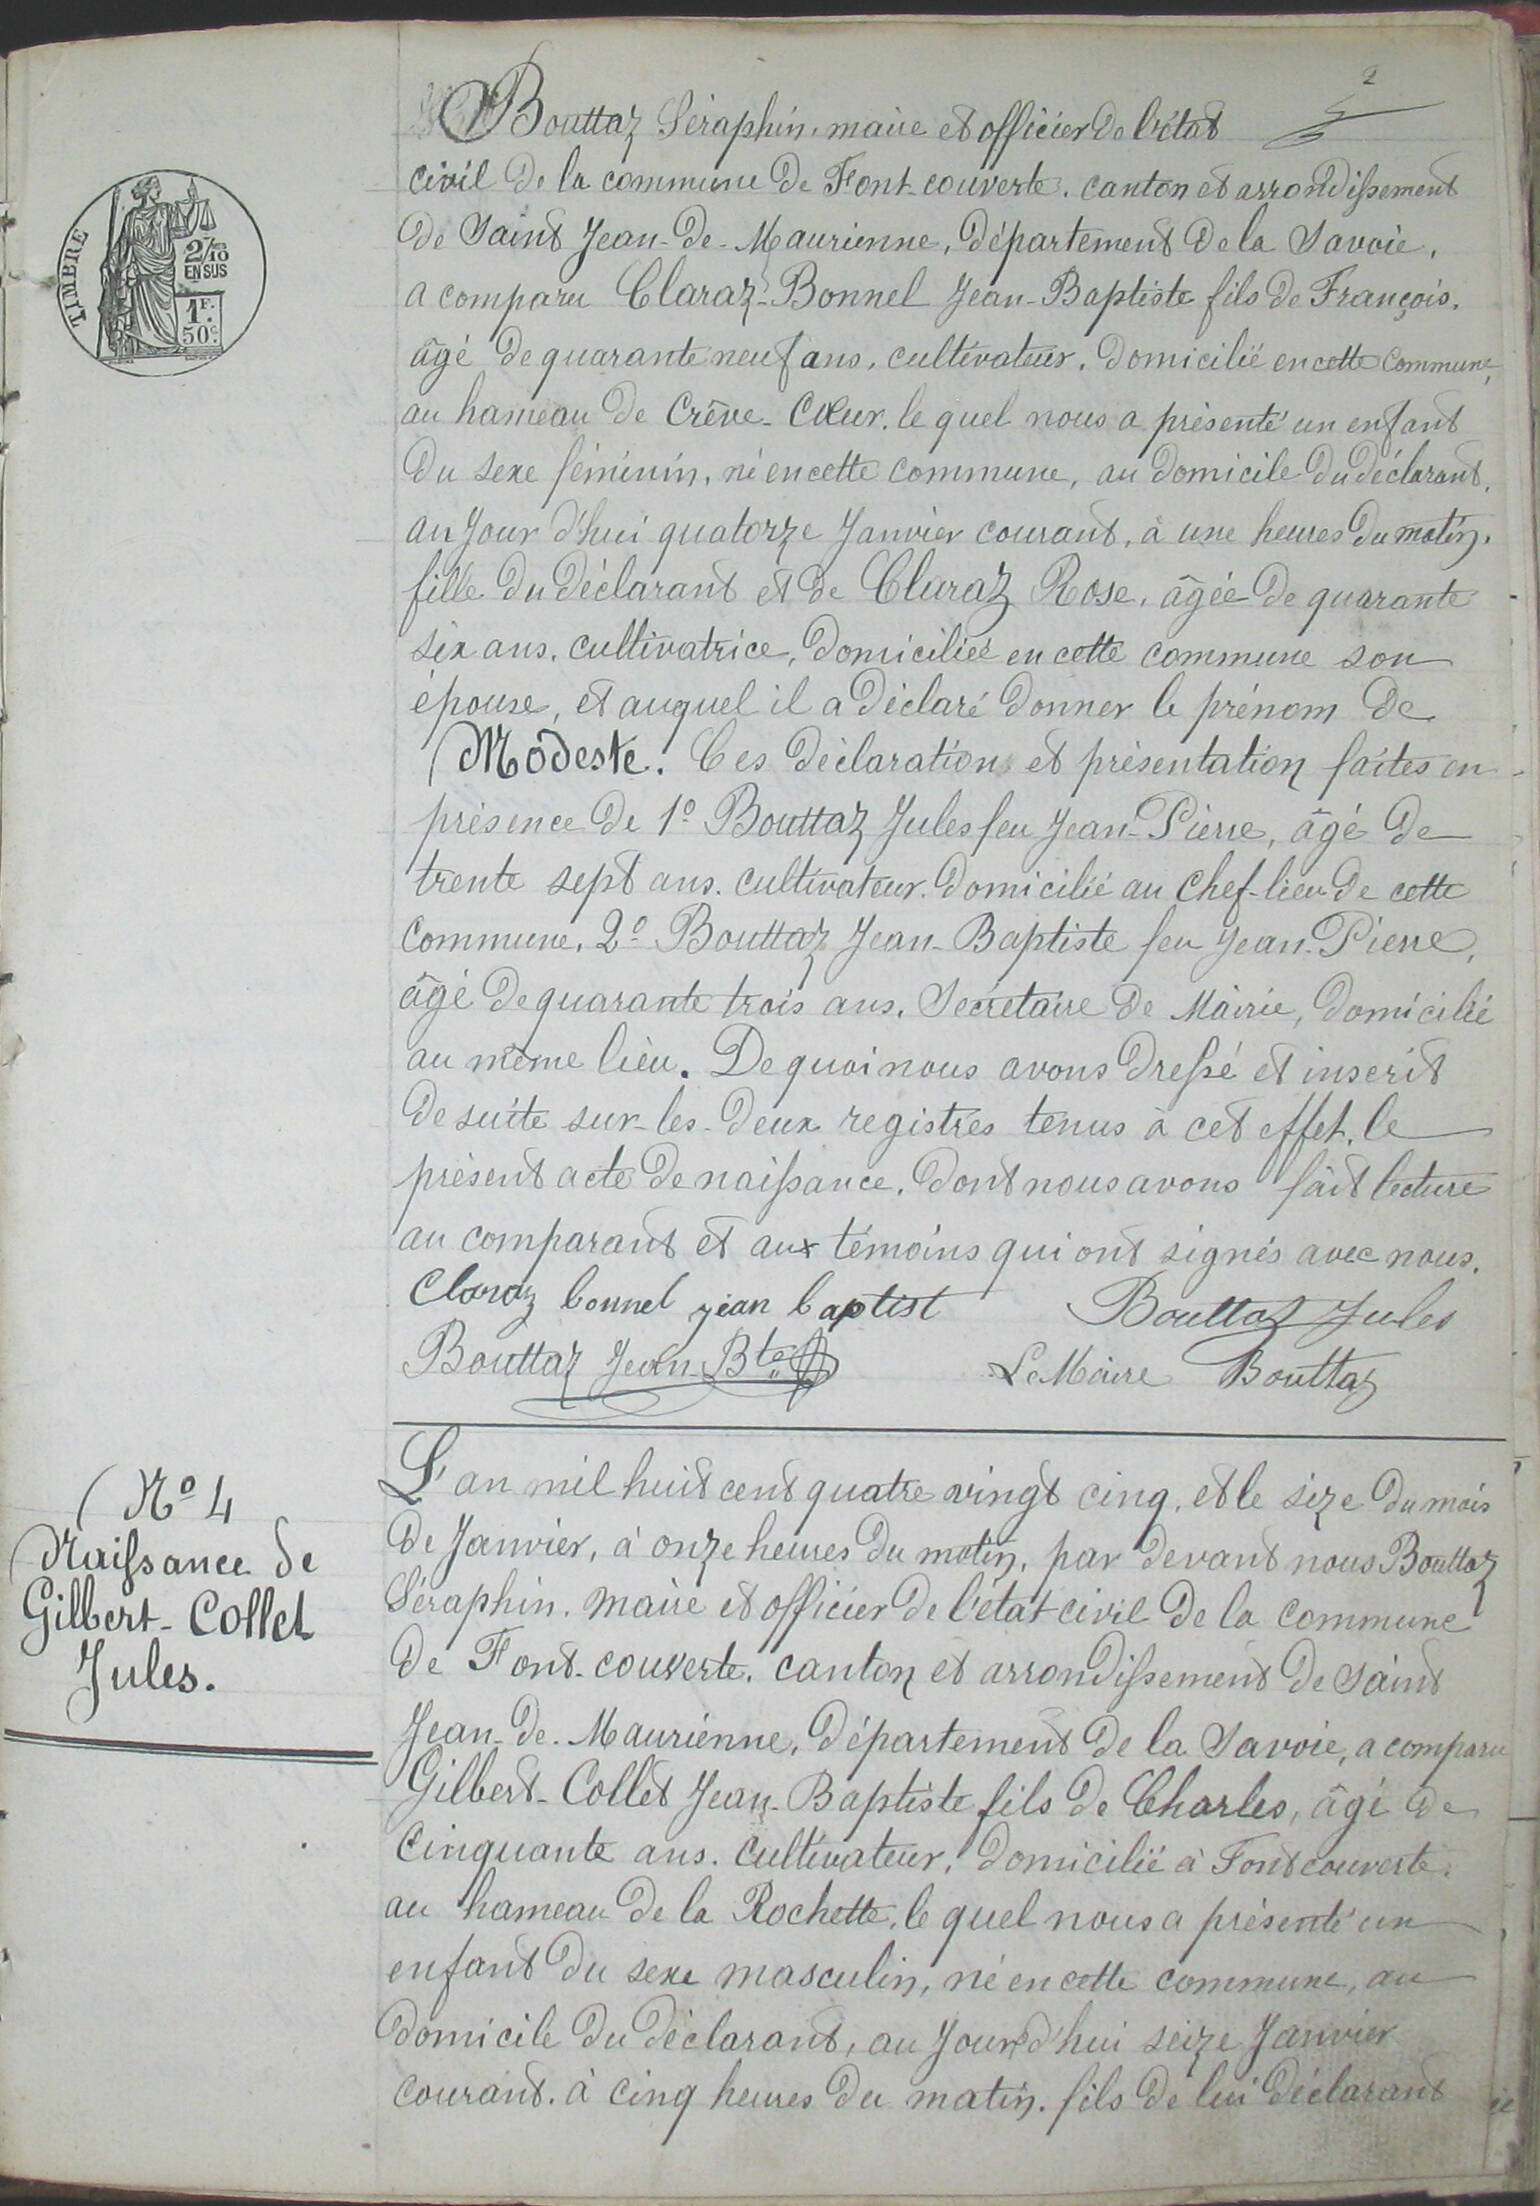 2
Bouttaz Séraphin, maire et officier de l'état
civil de la commune de Font-couverte, canton et arrondissement
de Saint Jean-de-Maurienne, département de la Savoie,
a comparu Claraz-Bonnel Jean-Baptiste fils de François,
âgé de quarante neuf ans, cultivateur, domicilié en cette commune,
au hameau de Crêve-Cœur, le quel nous a présenté un enfant
du sexe féminin, né en cette commune, au domicile du déclarant,
au jour d'hui quatorze Janvier courant, à une heures du matin,
fille du déclarant et de Claraz Rose, âgée de quarante
six ans, cultivatrice, domiciliée en cette commune son
épouse, et auquel il a déclaré donner le prénom de
Modeste. Ces déclaration et présentation faites en
présence de 1º Bouttaz Jules feu Jean-Pierre, âgé de
trente sept ans, cultivateur, domicilié au Chef-lieu de cette
commune, 2º Bouttaz Jean-Baptiste feu Jean-Pierre,
âgé de quarante trois ans, Secrétaire de Mairie, domicilié
au même lieu. De quoi nous avons dressé et inscrit
de suite sur-les-deux registres tenus à cet effet, le
présent acte de naissance, dont nous avons fait lecture
au comparant et aux témoins qui ont signés avec nous.
Claraz bonnel jean baptist Bouttaz Jules
Bouttaz Jean-Bte Le Maire Bouttaz
TIMBRE
2/10 EN SUS
1F. 50c.
Nº 4
Naissance de
Gilbert-Collet
Jules.
L'an mil huit cent quatre vingt cinq, et le seize du mois
de Janvier, à onze heures du matin, par devant nous Bouttaz
Séraphin, maire et officier de l'état civil de la commune
de Font-couverte, canton et arrondissement de Saint
Jean-de-Maurienne, département de la Savoie, a comparu
Gilbert-Collet Jean-Baptiste fils de Charles, âgé de
cinquante ans, cultivateur, domicilié à Fontcouverte,
au hameau de la Rochette, le quel nous a présenté un
enfant du sexe masculin, né en cette commune, au
domicile du déclarant, au jour d'hui seize Janvier
courant, à cinq heures du matin, fils de lui déclarant